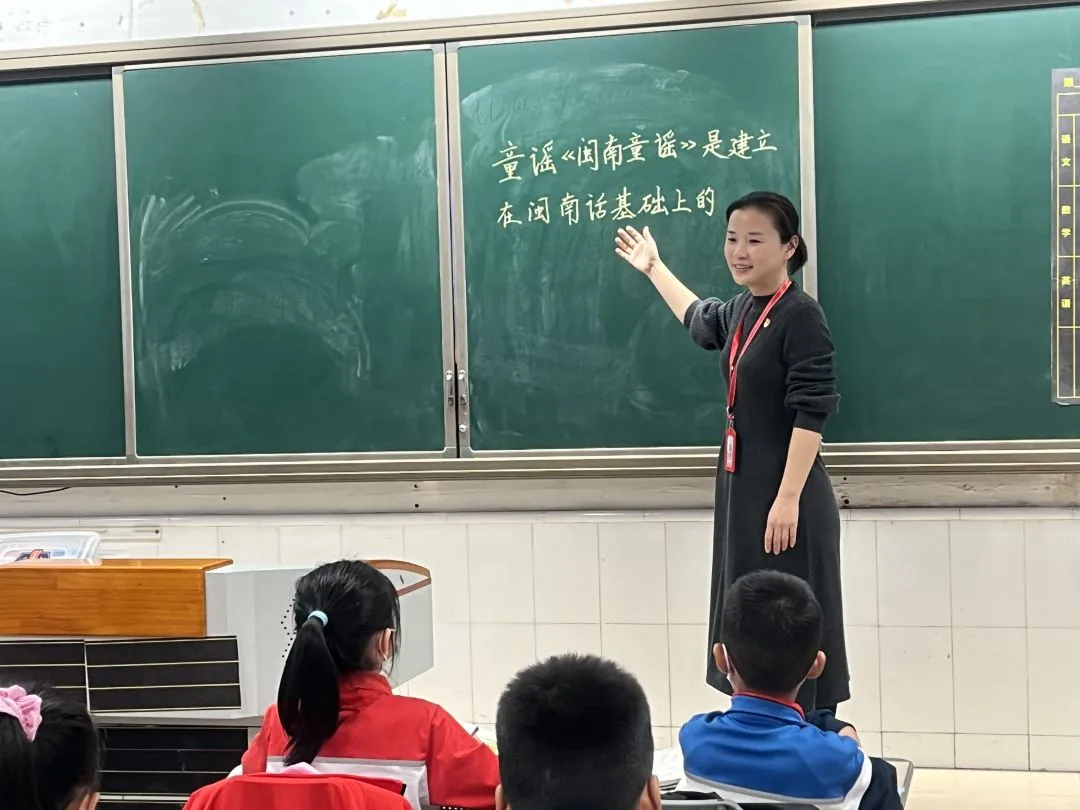 童谣《闽南童谣》是建立
在闽南话基础上的
第
语文
数学
英语